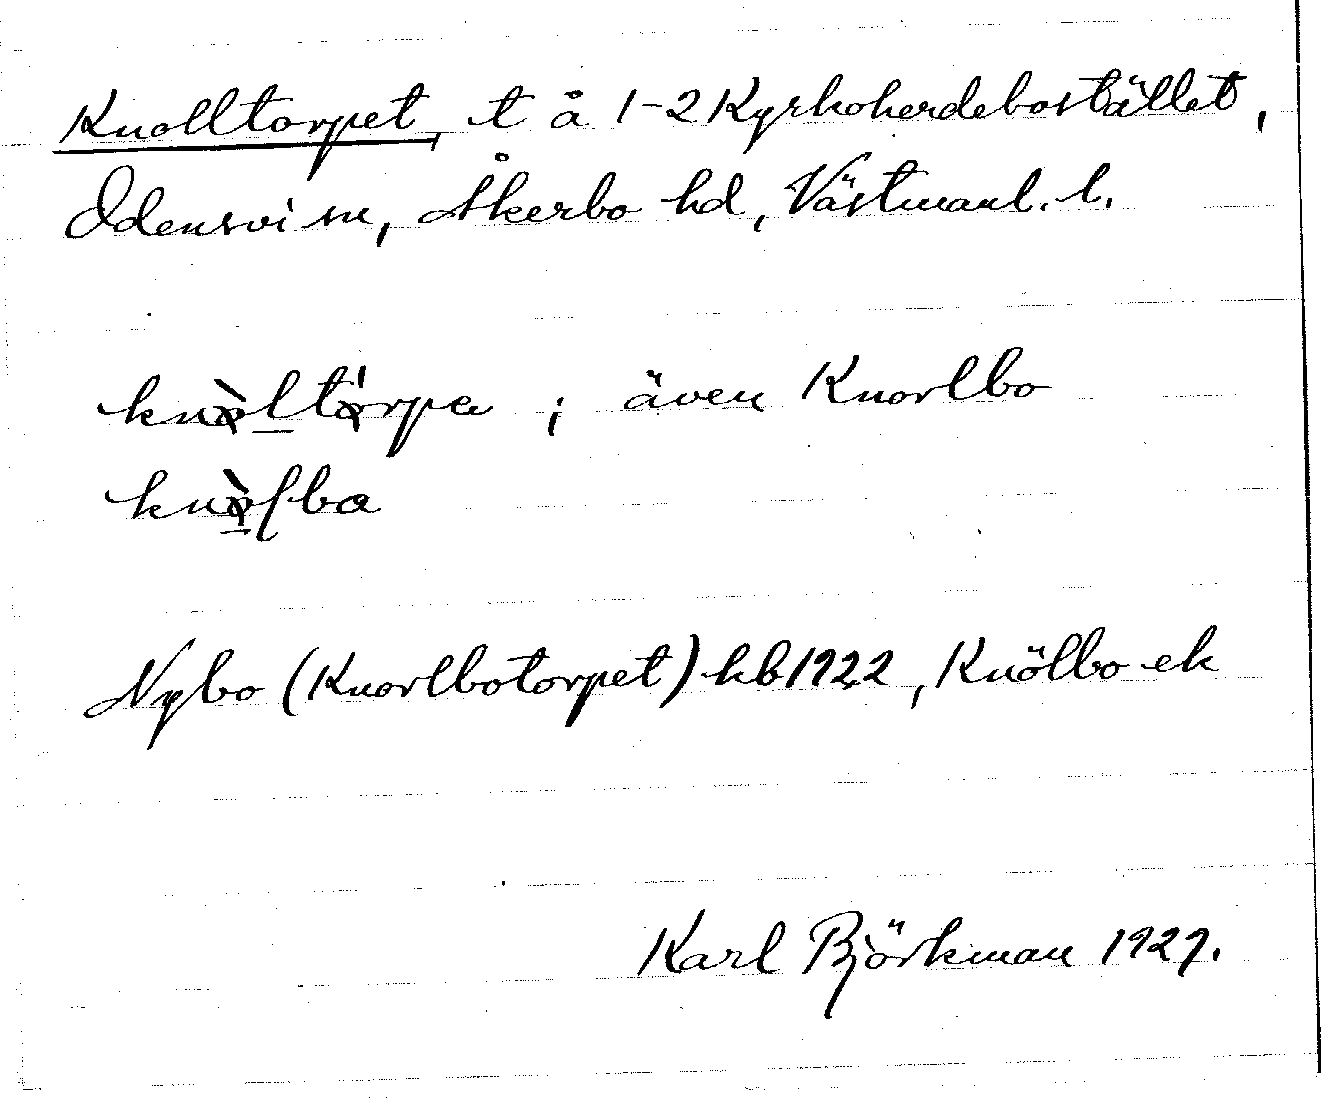 Knolltorpet, t å 1-2 Kyrkoherdebostället,
Odensvi sn, Åkerbo hd, Västmanl. l.
knòltórpa ; även Knorlbo
Nybo (Knorlbotorpet) kb 1922, Knölbo ek
Karl Björkman 1927.